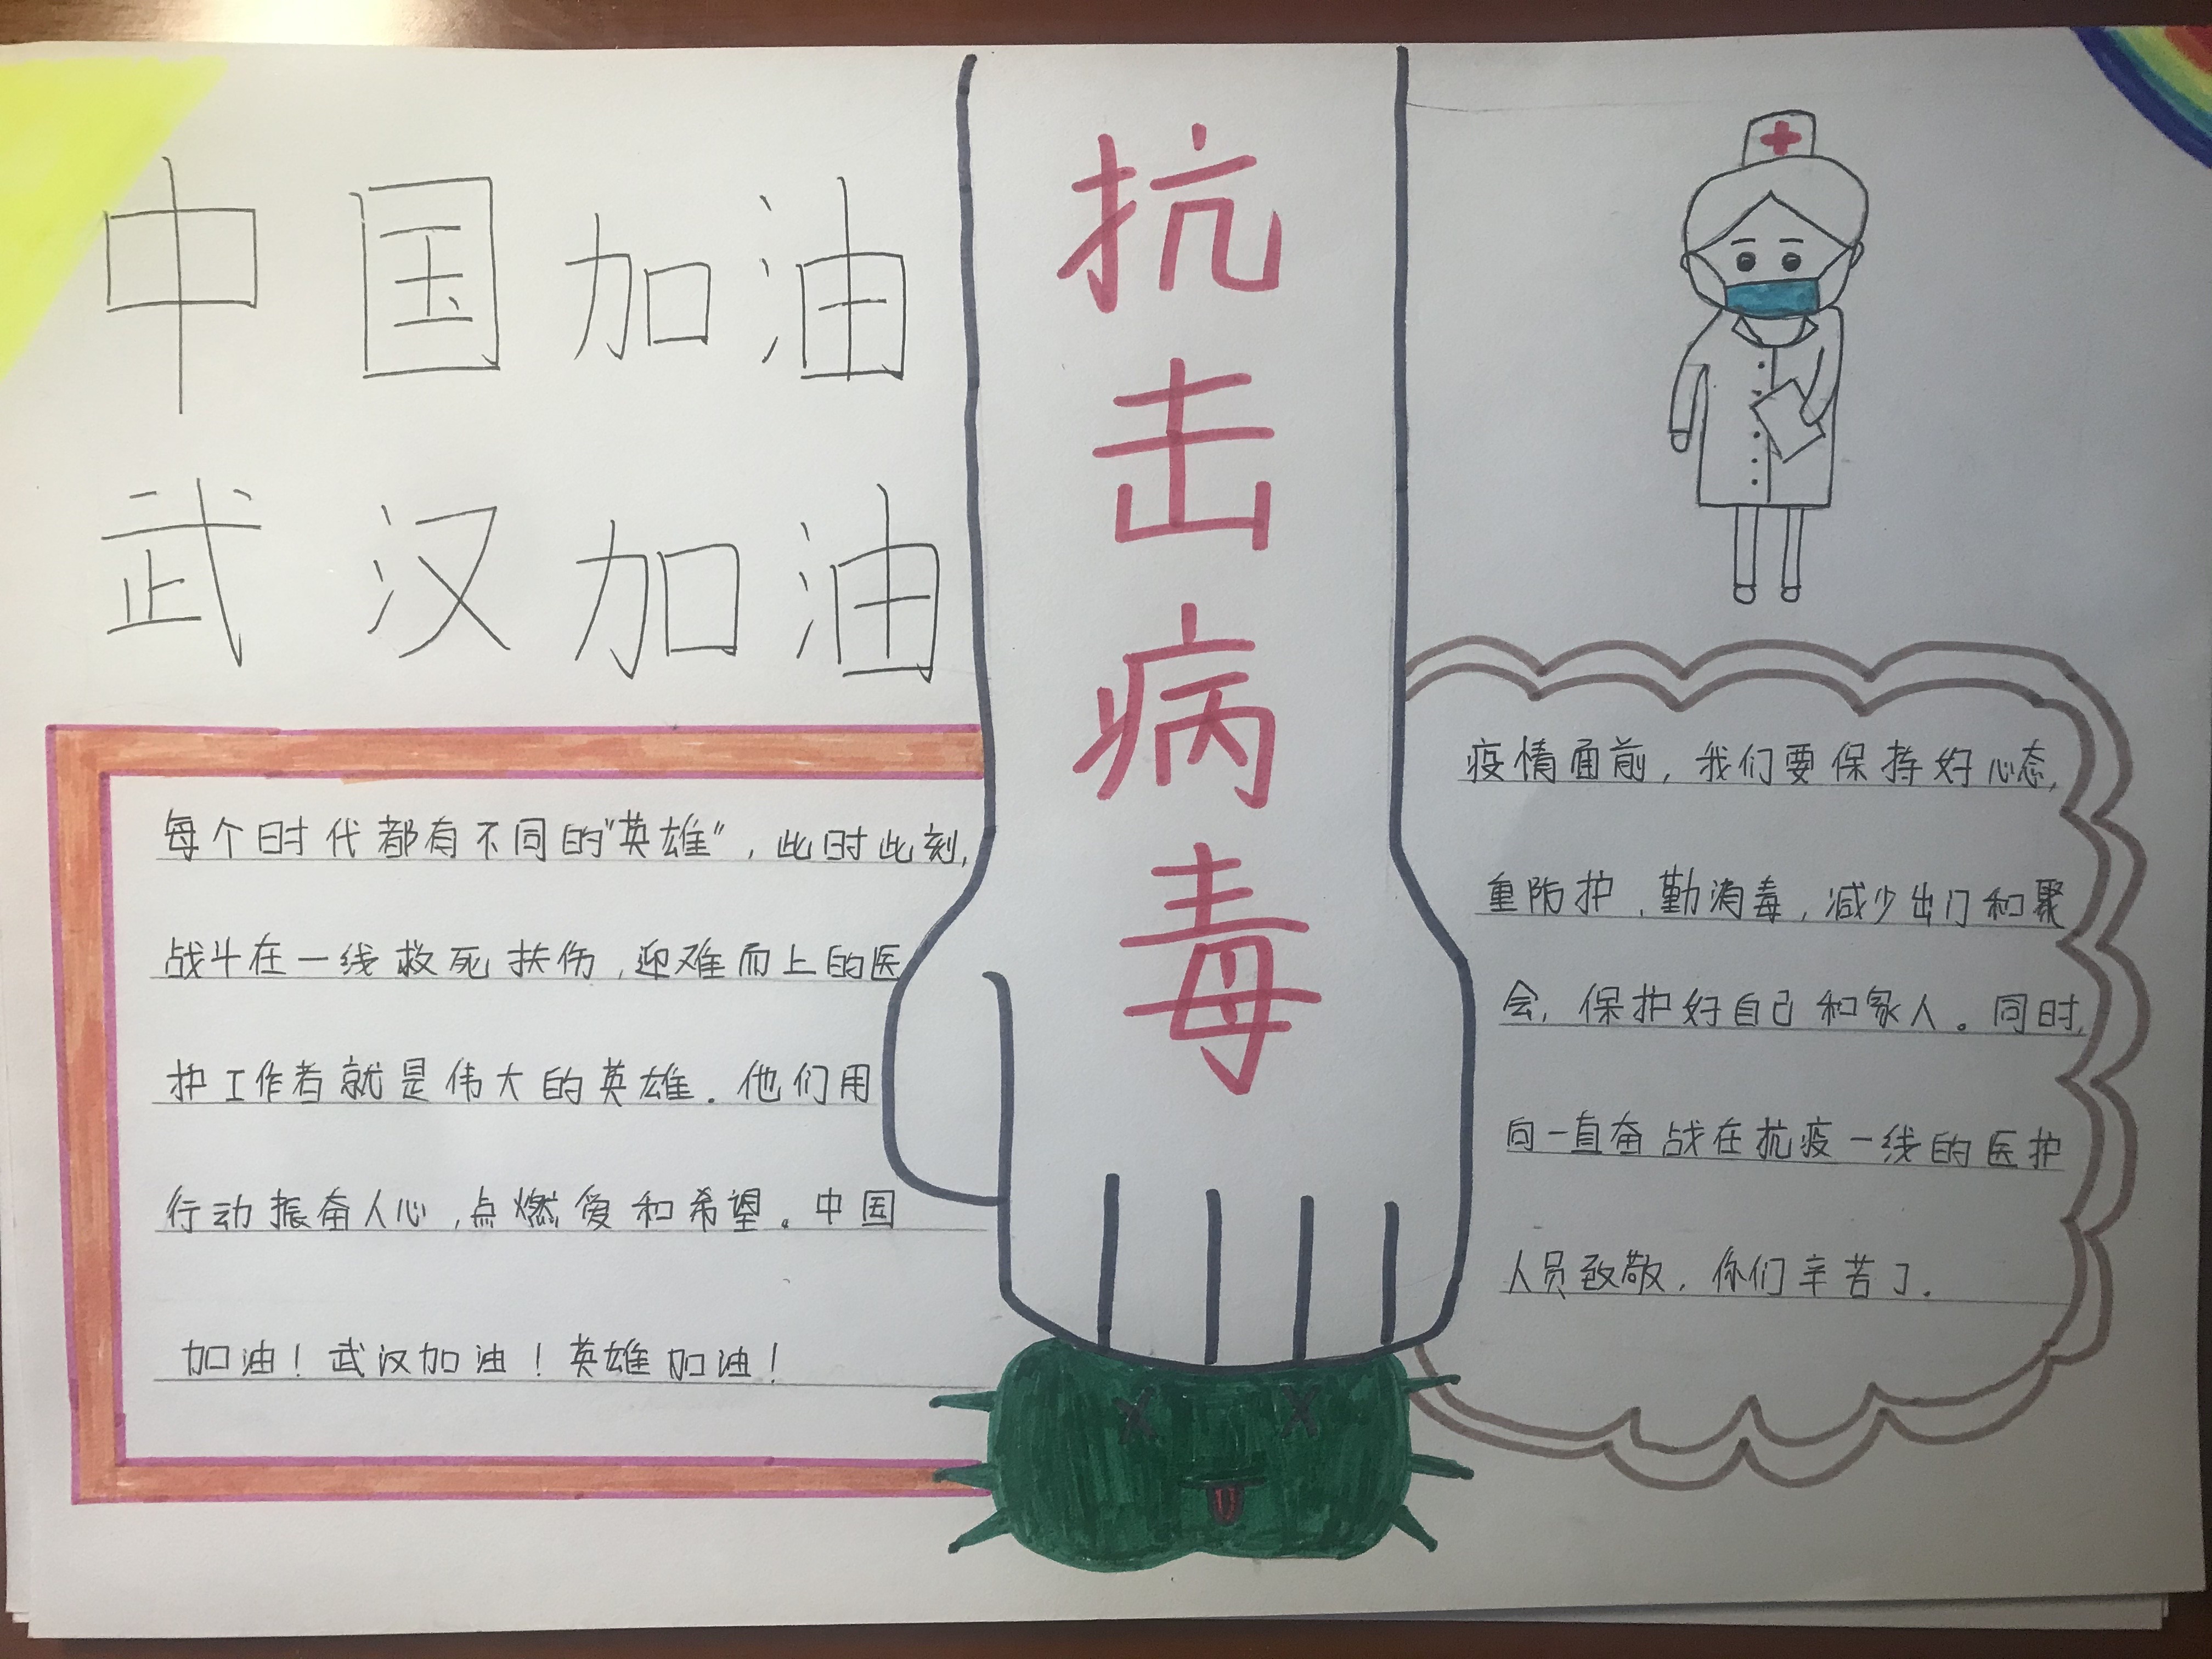 中国加油
武汉加油
抗击病毒
每个时代都有不同的"英雄"，此时此刻，
战斗在一线救死扶伤，迎难而上的医
护工作者就是伟大的英雄．他们用
行动振奋人心，点燃爱和希望。中国
加油！武汉加油！英雄加油！
疫情面前，我们要保持好心态，
重防护，勤消毒，减少出门和聚
会，保护好自己和家人。同时，
向一直奋战在抗疫一线的医护
人员致敬，你们辛苦了．